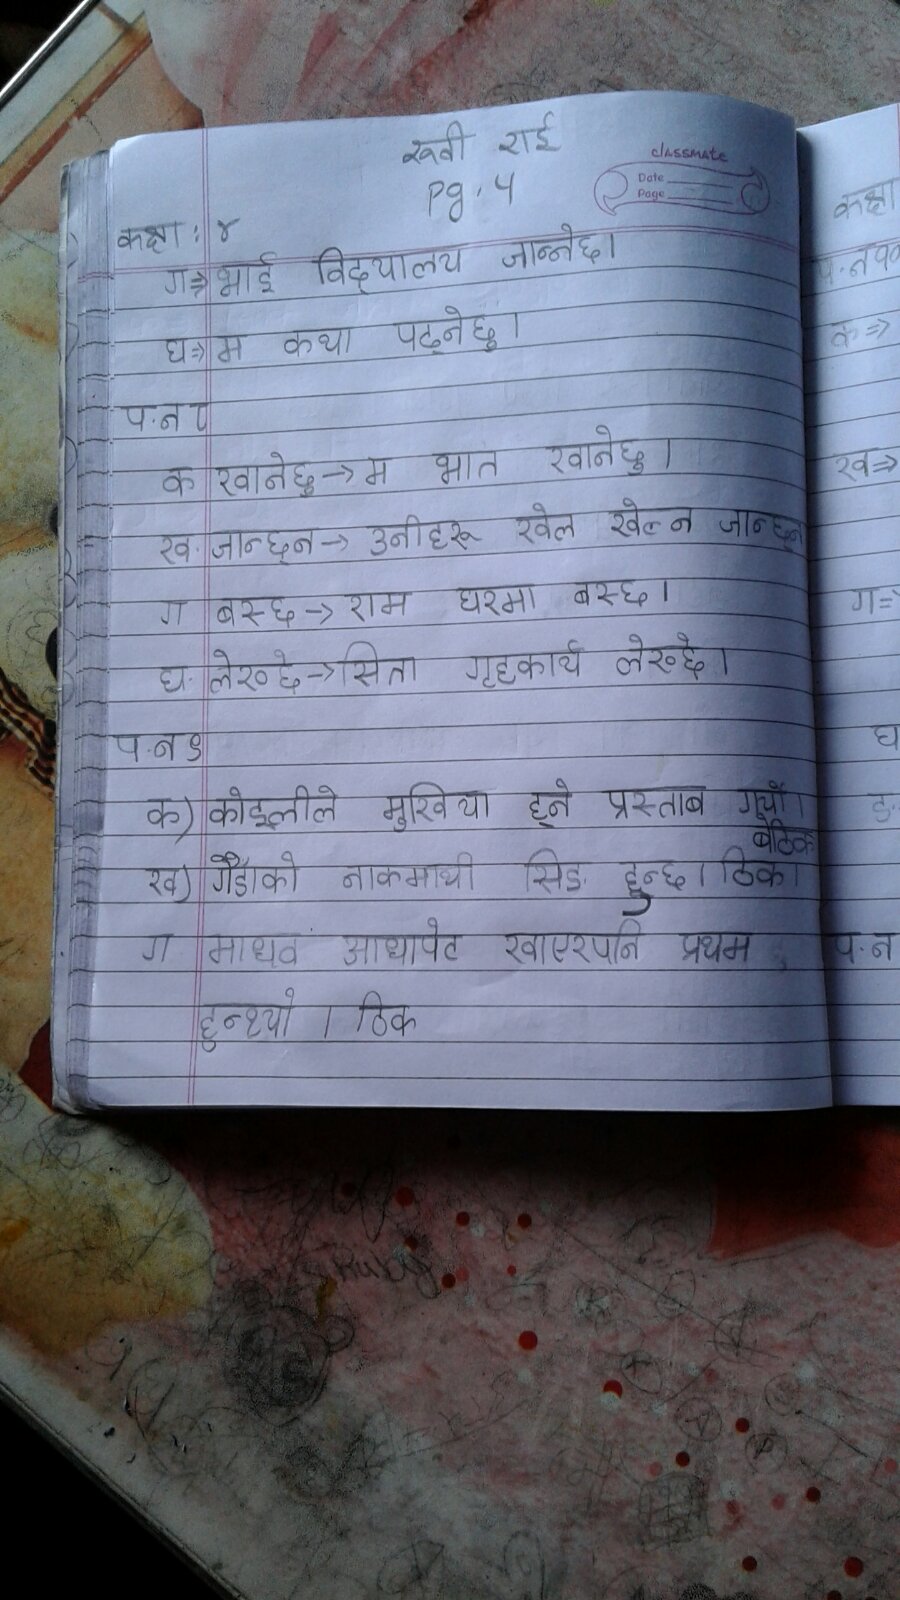 रूवी राई
classmate
Date
Page
pg. 4
कक्षा : ४
ग⇒ भाई विद्यालय जान्नेछ।
घ⇒ म कथा पढ्नेछु।
प.न ८
क खानेछु → म भात खानेछु।
ख. जान्छन → उनीहरू खेल खेल्न जान्छन
ग बस्छ → राम घरमा बस्छ।
घ. लेख्छे → सिता गृहकार्य लेख्छे।
प.न ९
क) कोइलीले मुखिया हुने प्रस्ताब गर्यो।
बेठिक
ख) गैंडाको नाकमाथी सिङ हुन्छ। ठिक।
ग माधव आधापेट खाएरपनि प्रथम
हुन्थ्यो । ठिक
कक्षा
क⇒
ख⇒
ग=
घ
प.न
Ruby